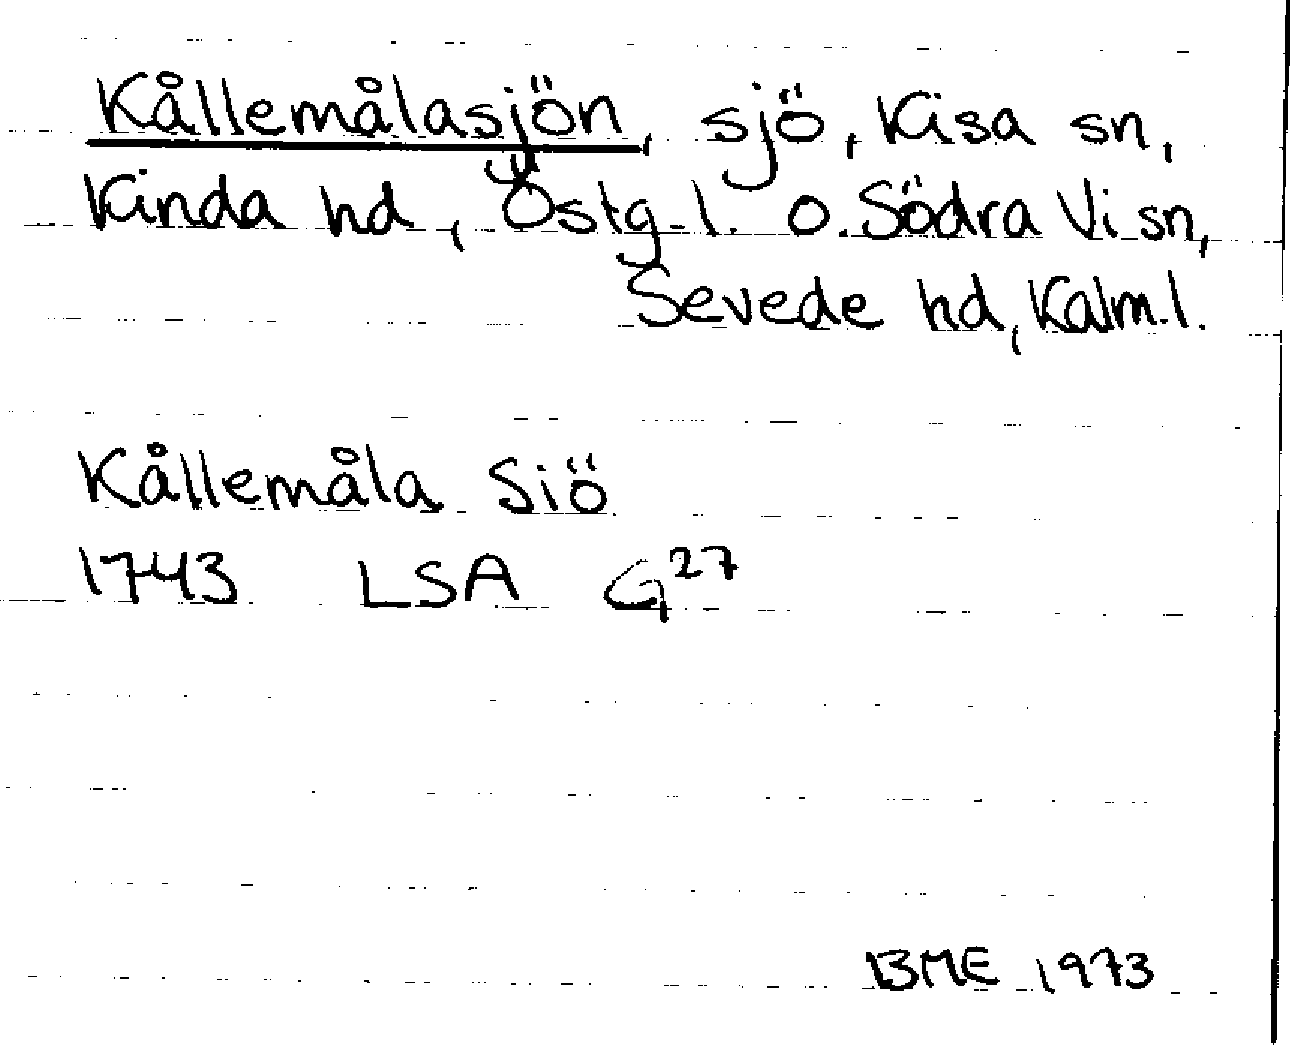 Kållemålasjön, sjö, Kisa sn,
Kinda hd, Östg. l. o. Södra Vi sn,
Sevede hd, Kalm. l.
Kållemåla Siö
1743 LSA G27
BME 1973